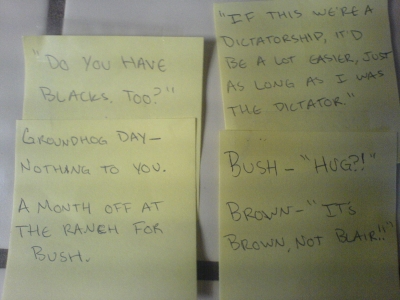 "DO YOU HAVE
BLACKS, TOO?"
"IF THIS WE'RE A
DICTATORSHIP, IT'D
BE A LOT EASIER, JUST
AS LONG AS I WAS
THE DICTATOR."
GROUNDHOG DAY—
NOTHING TO YOU.
A MONTH OFF AT
THE RANCH FOR
BUSH.
BUSH – "HUG?!"
BROWN – "ITS
BROWN, NOT BLAIR!!"